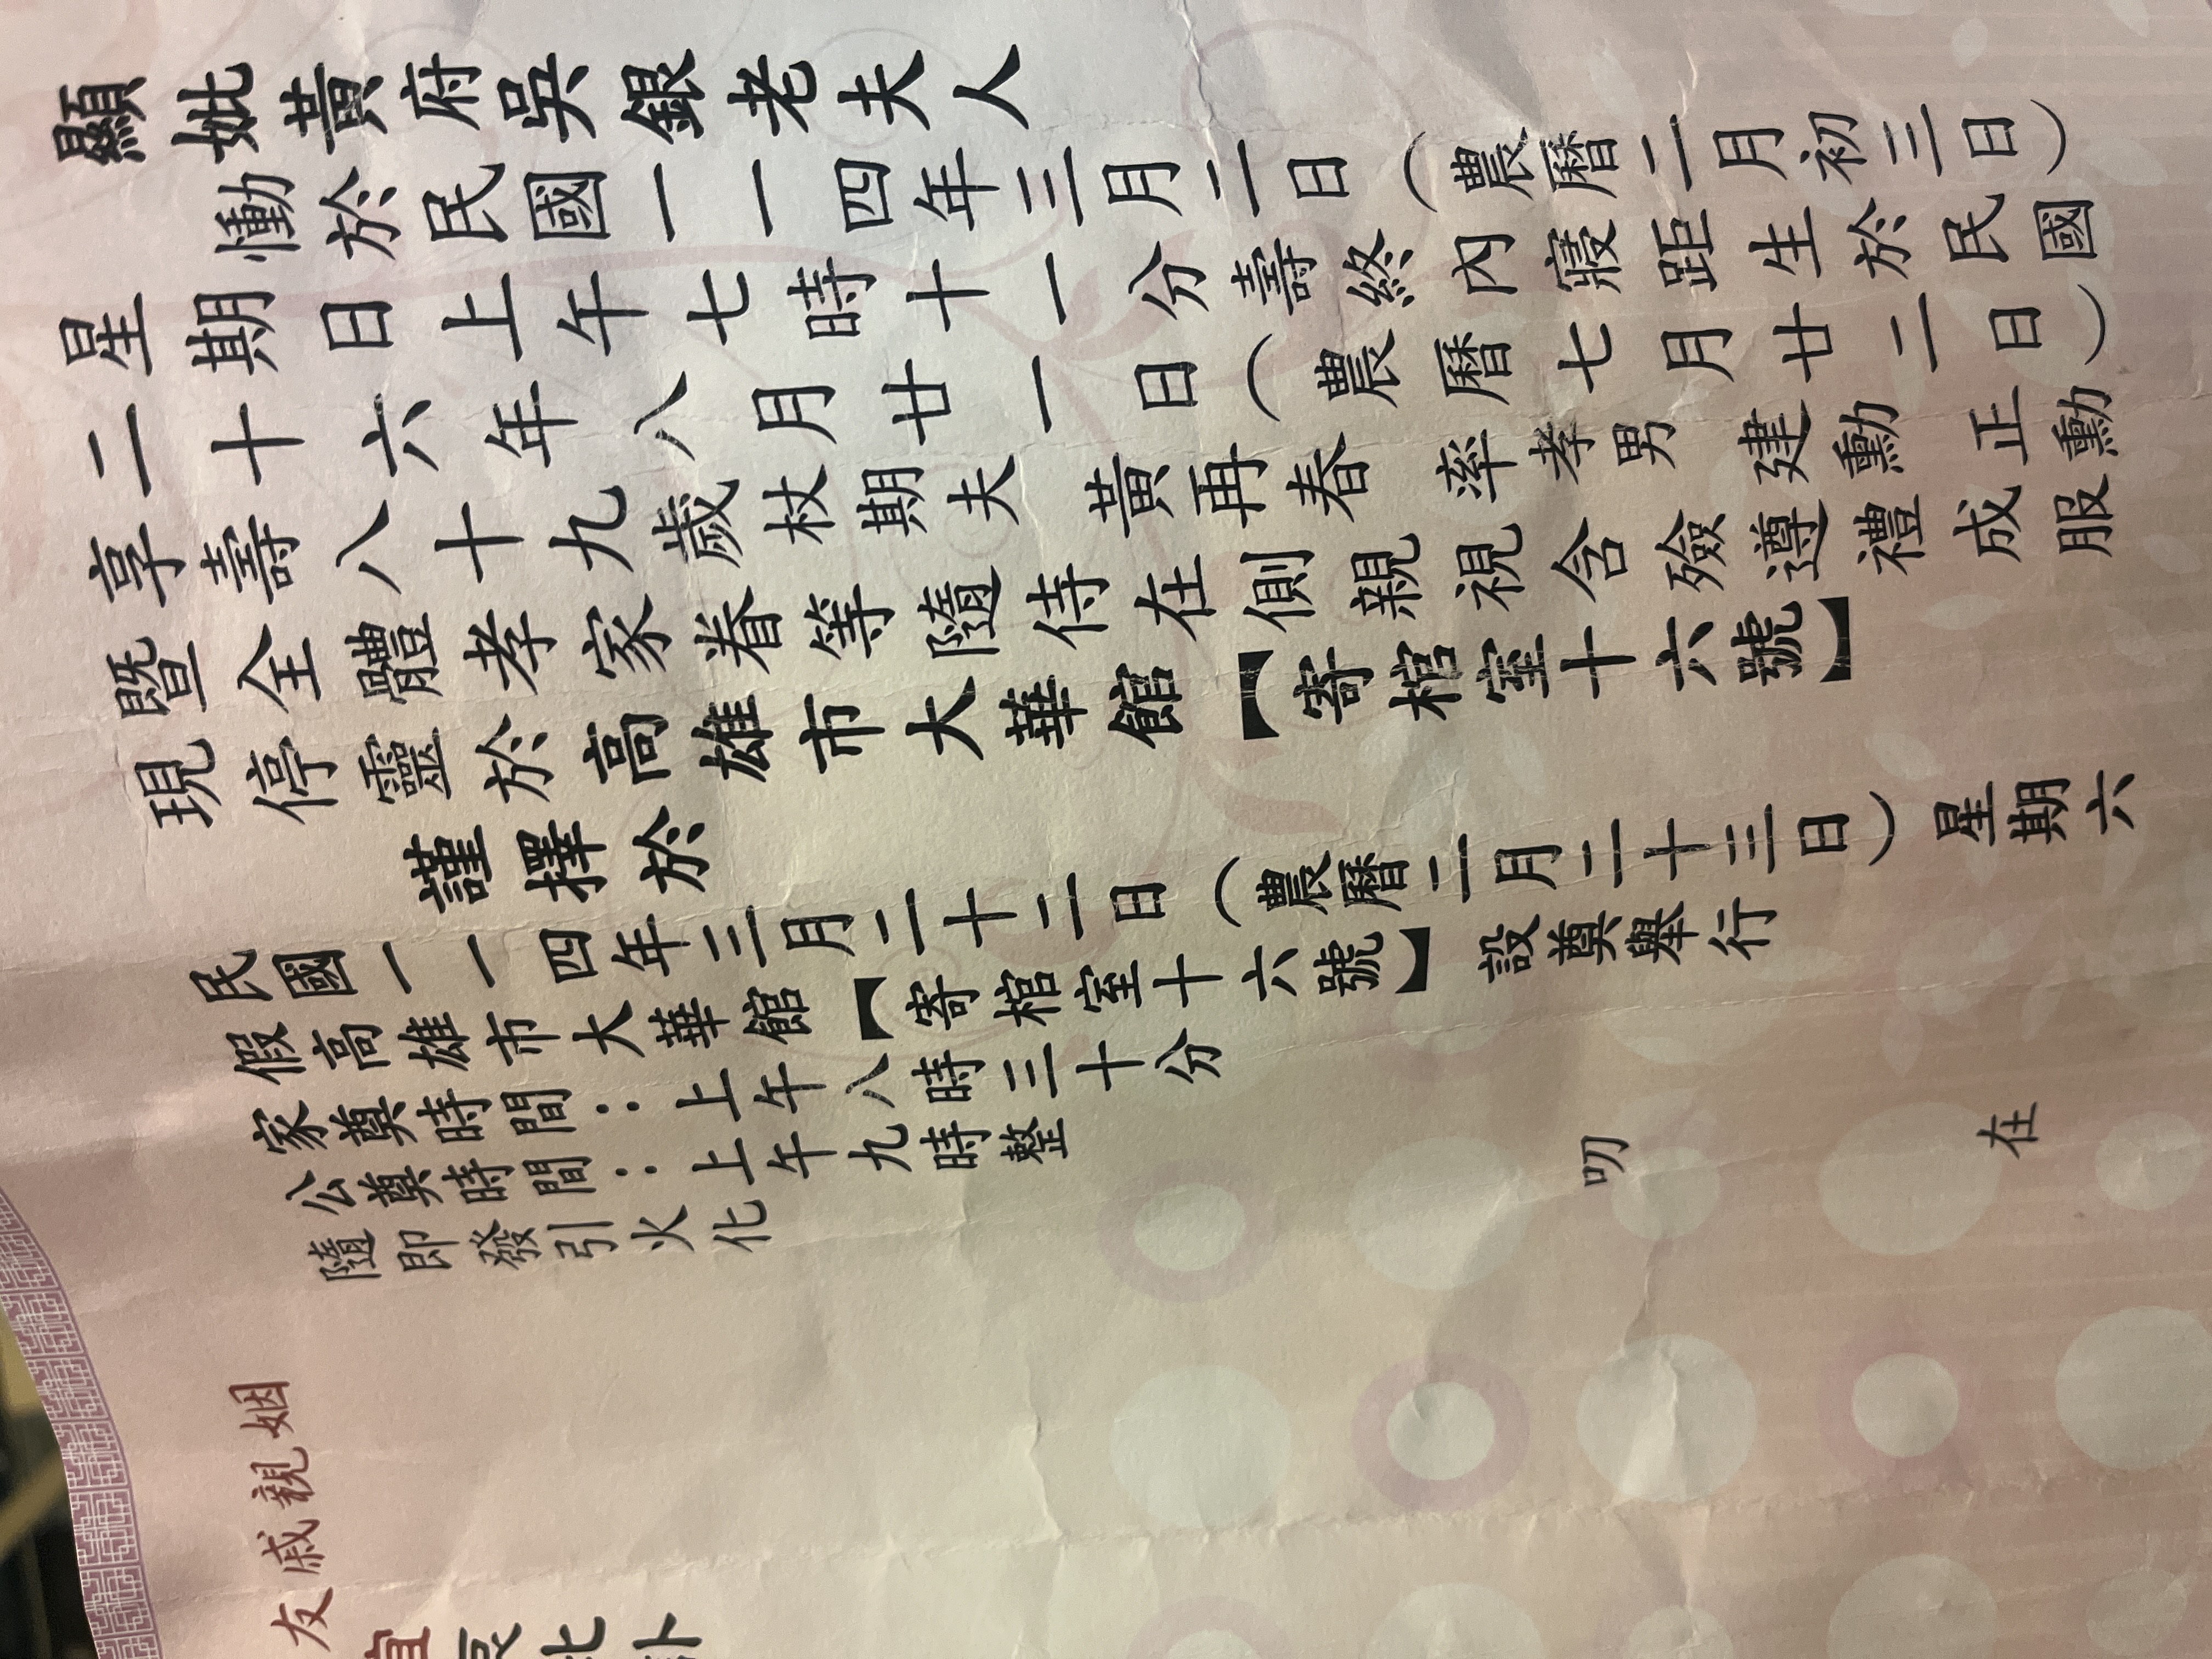 顯妣黃府吳銀老夫人
慟於民國一一四年三月二日（農曆二月初三日）
星期日上午七時十一分壽終內寢距生於民國
二十六年八月廿一日（農曆七月廿二日）
享壽八十九歲杖期夫 黃再春 率孝男 建勳 正勳
暨全體孝家眷等隨侍在側親視含殮遵禮成服
現停靈於高雄市大華館【寄棺室十六號】
謹擇於
民國一一四年三月二十二日（農曆二月二十三日）星期六
假高雄市大華館【寄棺室十六號】設奠舉行
家奠時間：上午八時三十分
公奠時間：上午九時整
隨即發引火化
叨 在
姻親戚友